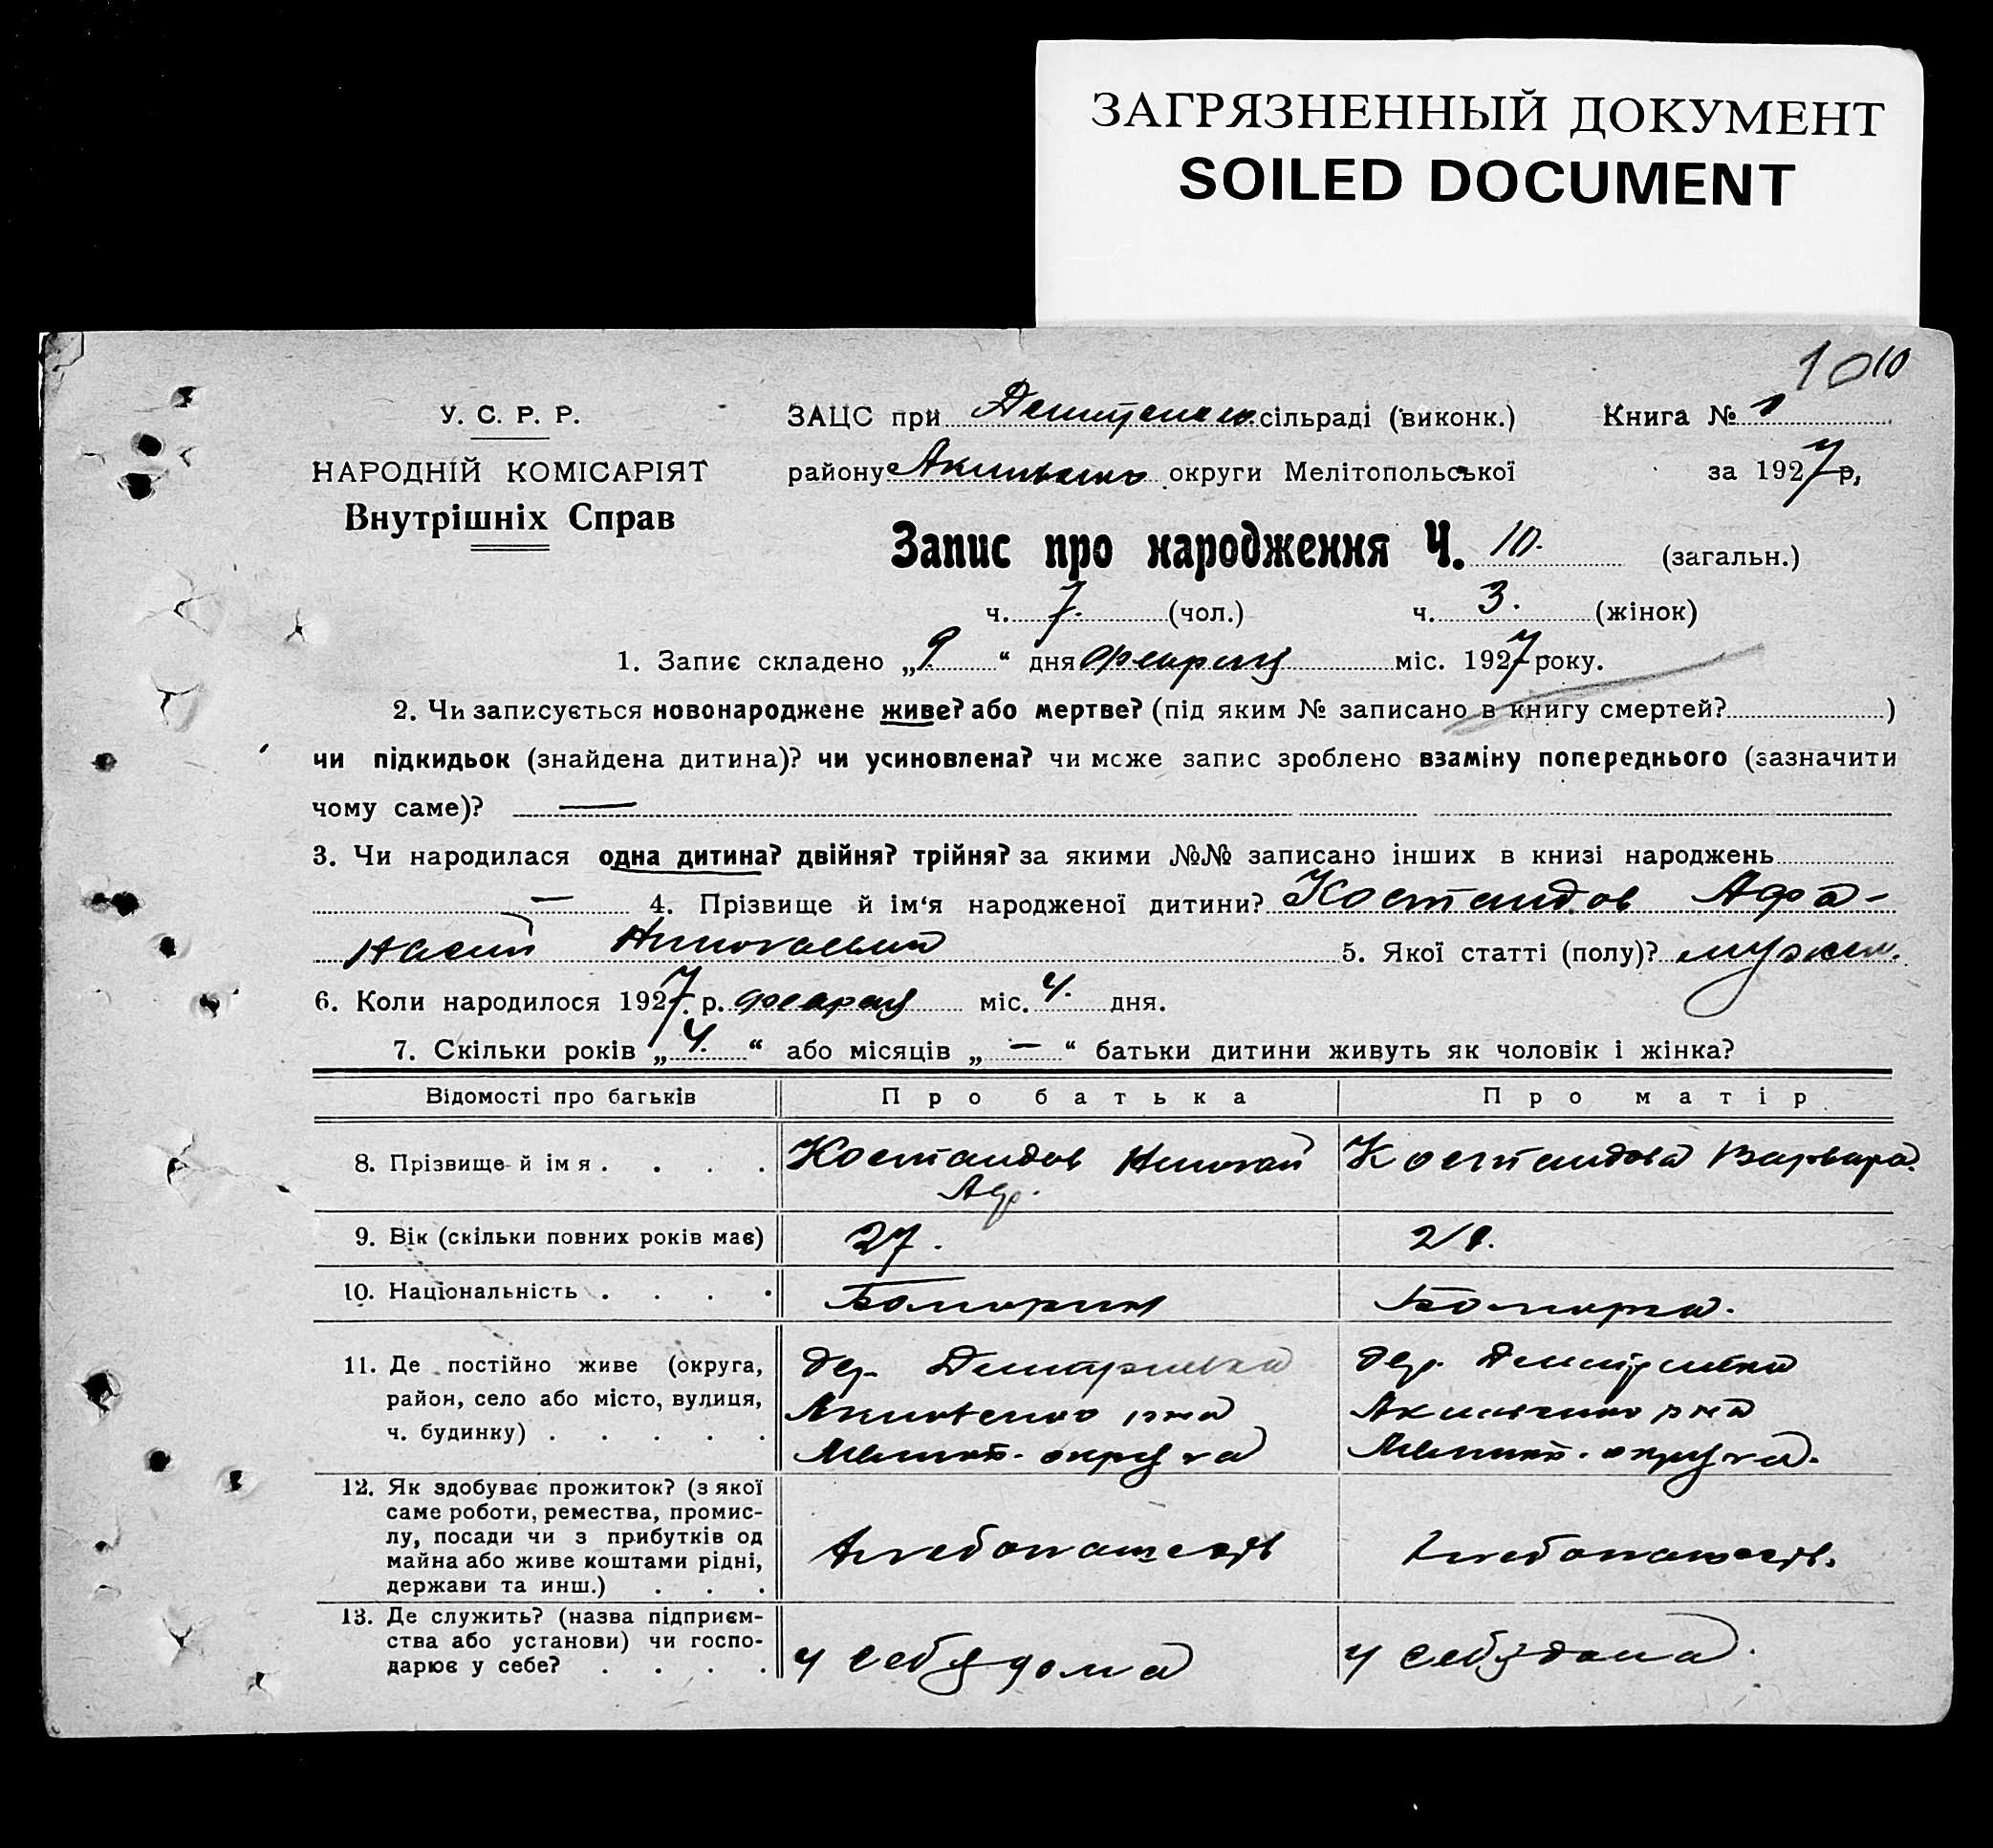 ЗАГРЯЗНЕННЫЙ ДОКУМЕНТ
SOILED DOCUMENT
10 10
У. С. Р. Р.
НАРОДНІЙ КОМІСАРІЯТ
Внутрішніх Справ
ЗАЦС при сільраді (виконк.) Книга № 1
району округи Мелітопольської за 1927 р,
Запис про народження Ч. 10. (загальн.)
ч. 7. (чол.) ч. 3. (жінок)
1. Запис складено „9“ дня февраля міс. 1927 року.
2. Чи записується новонароджене живе? або мертве? (під яким № записано в книгу смертей? )
чи підкидьок (знайдена дитина)? чи усиновлена? чи може запис зроблено взаміну попереднього (зазначити
чому саме)? —
3. Чи народилася одна дитина? двійня? трійня? за якими №№ записано інших в книзі народжень
— 4. Прізвище й ім‘я народженої дитини? Костандов Афа-
насий Николаевич 5. Якої статті (полу)? мужск.
6. Коли народилося 1927 р. февраля міс. 4. дня.
7. Скільки років „4.“ або місяців „—“ батьки дитини живуть як чоловік і жінка?
Відомості про батьків Про батька Про матір
8. Прізвище й ім я . . . . Костандов Николай Аф. Костандова Варвара.
9. Вік (скільки повних років має) 27. 21.
10. Національність . . . . Болгарин Болгарка.
11. Де постійно живе (округа, дер. Дмитровка дер. Дмитровка
район, село або місто, вулиця, Акимовского р-на Акимовского р-на
ч. будинку) . . . . . Мелитоп. округа Мелитоп. округа.
12. Як здобуває прожиток? (з якої
саме роботи, ремества, промис-
лу, посади чи з прибутків од
майна або живе коштами рідні,
держави та инш.) . . .
Хлебопашество Хлебопашество.
13. Де служить? (назва підприєм-
ства або установи) чи госпо-
дарює у себе? . . . .
у себя дома у себя дома.